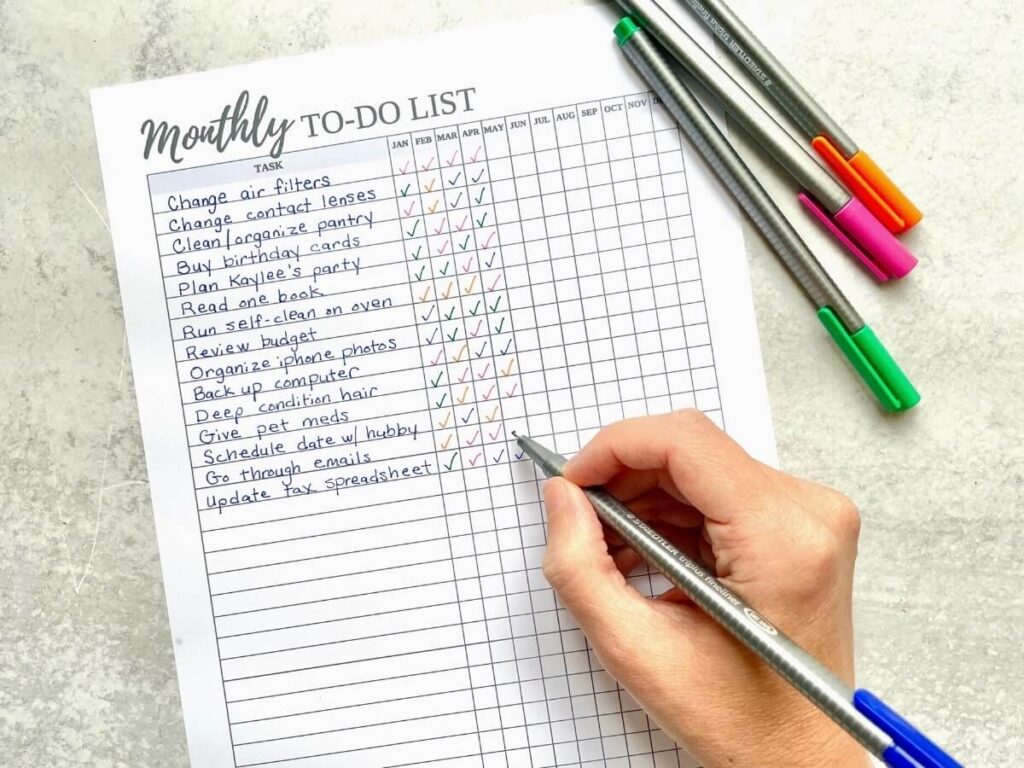 Monthly TO-DO LIST
TASK JAN FEB MAR APR MAY JUN JUL AUG SEP OCT NOV
Change air filters
Change contact lenses
Clean/organize pantry
Buy birthday cards
Plan Kaylee's party
Read one book
Run self-clean on oven
Review budget
Organize iphone photos
Back up computer
Deep condition hair
Give pet meds
Schedule date w/ hubby
Go through emails
Update tax spreadsheet
STAEDTLER triplus fineliner
STAEDTLER triplus fineliner